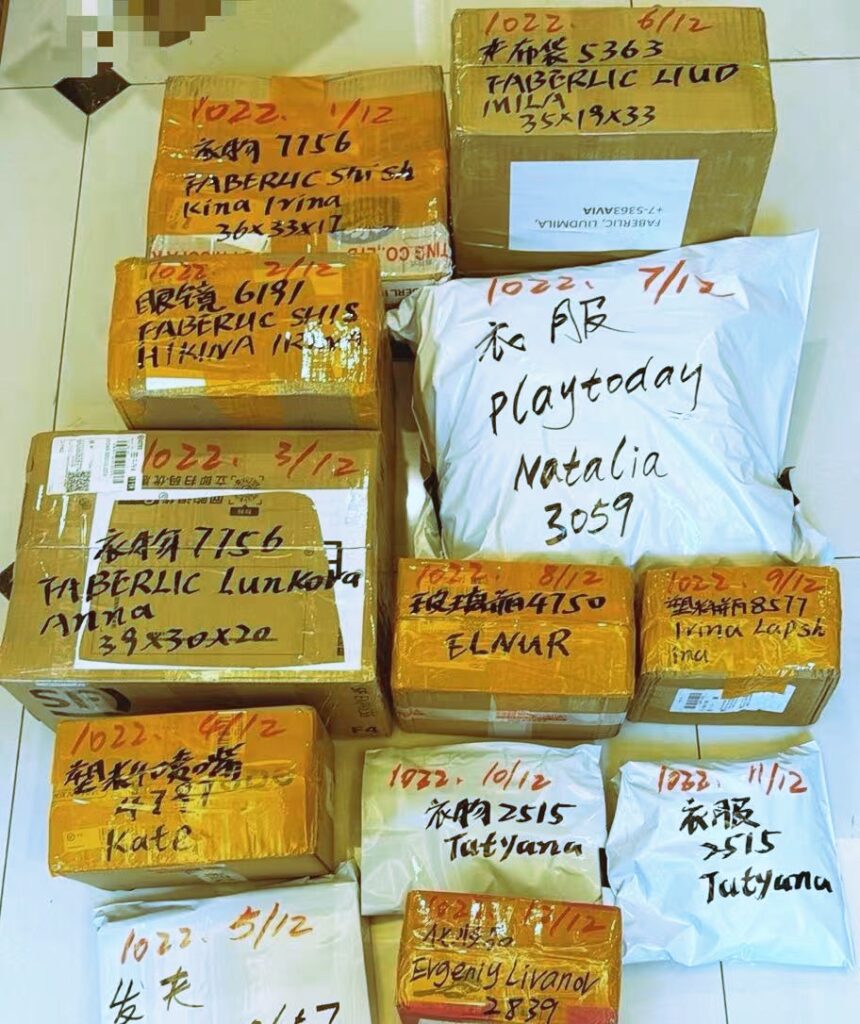 1022. 1/12
衣服 7756
FABERLIC Shish
Kina Irina
36×33×17
TING CO.,LTD
1022. 6/12
布袋 5363
FABERLIC LIUD
MILA
35×19×33
FABERLIC, LIUDMILA,
+7-5363AVIA
1022. 2/12
眼镜 6191
FABERLIC SHIS
HIKINA IRINA
1022. 7/12
衣服
Playtoday
Natalia
3059
1022. 3/12
立即扫码优
衣服 7756
FABERLIC Lunkova
Anna
39×30×20
SF
F4
1022. 8/12
玻璃瓶 4750
ELNUR
1022. 9/12
塑料瓶 8577
Irina Lapsh
ina
1022. 4/12
塑料喷嘴
4787
Kate
1022. 10/12
衣服 2515
Tatyana
1022. 11/12
衣服
2515
Tatyana
1022. 5/12
发夹
1022. 12/12
Evgeniy Livanov
2839